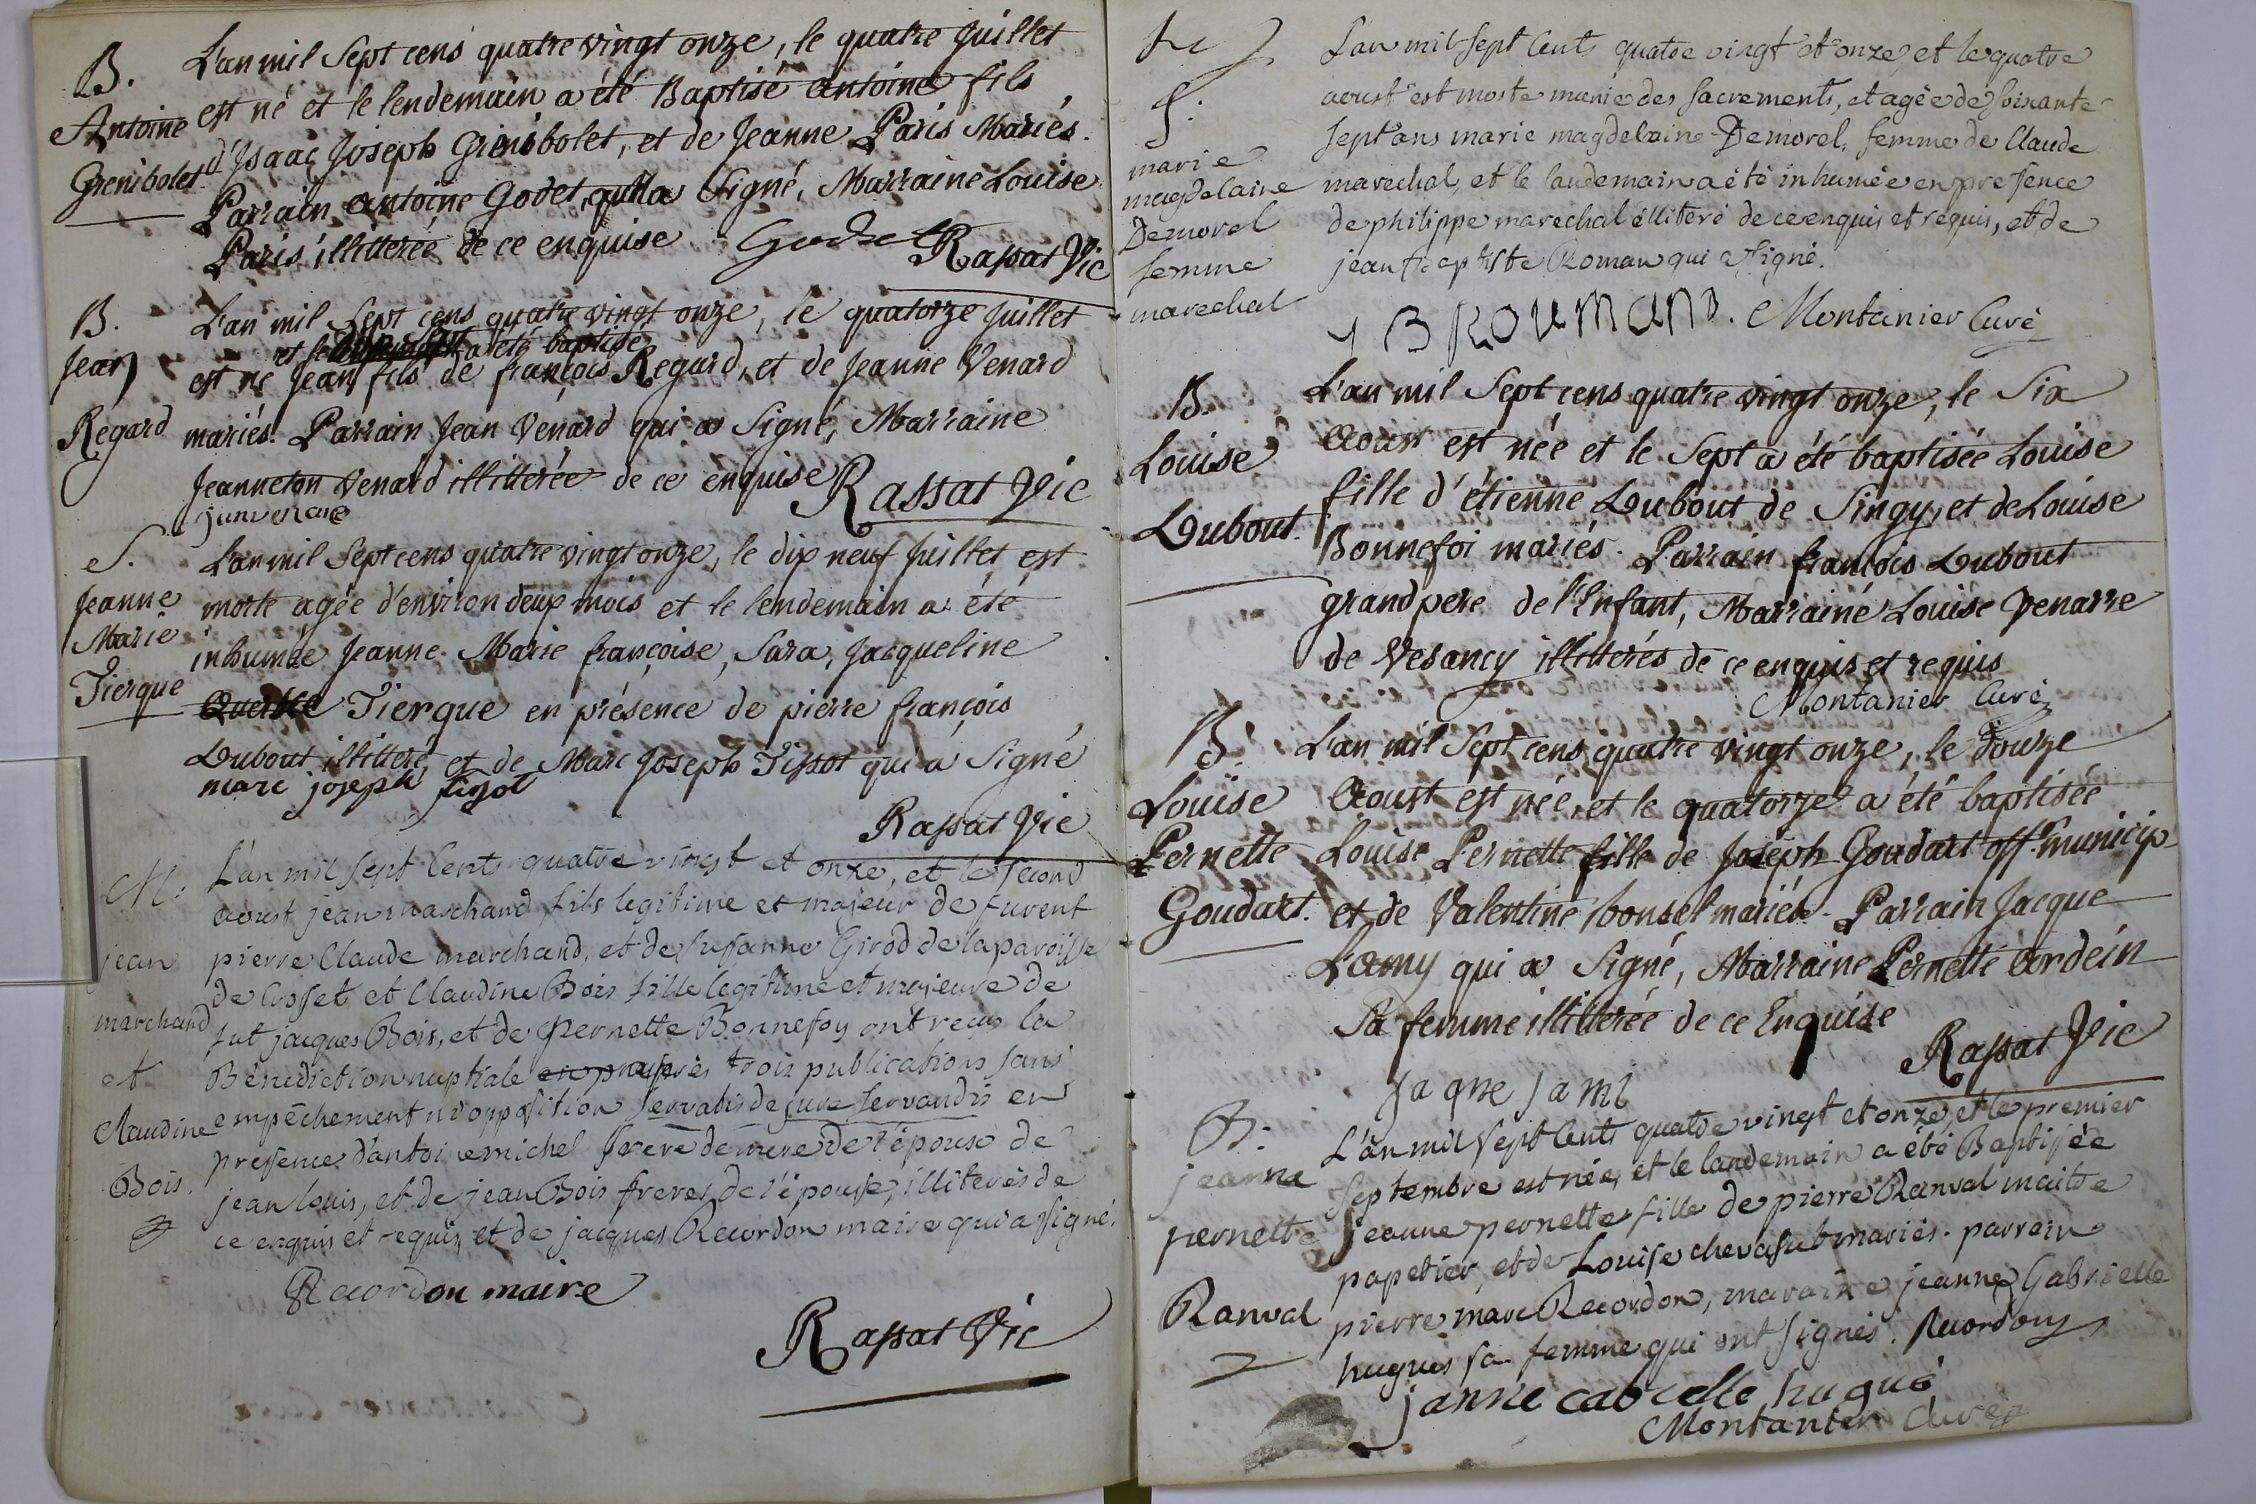 B.
Antoine
Grenibolet
L'an mil Sept cens quatre vingt onze, le quatre Juillet
est né et le lendemain a été Baptisé Antoine fils
d'Isaac Joseph Grenibolet, et de Jeanne Paris Mariés.
Parrain Antoine Godet, qui a Signé, Marraine Louise
Paris illitterée de ce enquise
Godet Rassat Vic
B.
Jean
Regard
L'an mil Sept cens quatre vingt onze, le quatorze Juillet
et le a été baptisé
est né Jean fils de françois Regard, et de Jeanne Venard
mariés. Parrain Jean Venard qui a Signé, Marraine
Jeanneton Venard illitterée de ce enquise Rassat Vic
S.
Jeanne
Marie
Tierque
L'an mil Sept cens quatre vingt onze, le dix neuf Juillet est
morte agée d'environ deux mois et le lendemain a été
inhumée Jeanne Marie françoise, Sara, Jacqueline
Tierque en présence de pierre françois
Dubout illitteré et de Marc Joseph Tissot qui a Signé
marc joseph tisot
Rassat Vic
M.
jean
marchand
et
Claudine
Bois.
L'an mil Sept Cents quatre vingt et onze, et le second
aoust jean marchand fils legitime et majeur de furent
pierre Claude marchand, et de Susanne Girod de la paroisse
de Crosset et Claudine Bois fille legitime et majeure de
fut jacques Bois, et de pernette Bonnefoy ont recus la
Bénédiction nuptiale après trois publications sans
empêchement ni opposition servatis de jure servandis en
presence d'antoine michel frere de mere de l'épouse de
jean louis, et de jean Bois freres de l'épouse, illiterés de
ce enquis et requis, et de jacques Recordon maire qui a signé.
Recordon maire
Rassat Vic
S.
marie
magdelaine
Demorel
femme
marechal
L'an mil sept Cents quatre vingt et onze, et le quatre
aoust est morte munie des sacrements, et agée de soixante
sept ans marie magdelaine Demorel, femme de Claude
marechal, et le landemain a été inhumée en presence
de philippe marechal illiteré de ce enquis et requis, et de
jean baptiste Roman qui a signé.
J B ROUMAND. Montanier Curé
B.
Louise
Dubout.
L'an mil Sept cens quatre vingt onze, le Six
Aoust est née et le Sept a été baptisée Louise
fille d'étienne Dubout de Singy, et de Louise
Bonnefoi mariés. Parrain françois Dubout
grand pere de l'Enfant, Marraine Louise Venarre
de Vesancy illitterés de ce enquis et requis
Montanier Curé
B.
Louise
Pernette
Goudart.
L'an mil Sept cens quatre vingt onze, le douze
Aoust est née, et le quatorze a été baptisée
Louise Pernette fille de Joseph Goudart off. municip
et de Valentine bonsel mariés. Parrain Jacque
Lamy qui a Signé, Marraine Pernette
Sa femme illitterée de ce Enquise
Rassat Vic
Jaque Lami
B.
jeanne
pernette
Ranval
L'an mil Sept Cents quatre vingt et onze, et le premier
Septembre est née, et le landemain a été Baptisée
jeanne pernette fille de pierre Ranval maitre
papetier, et de Louise chevassut mariés. parrein
pierre marc Recordon, maraine jeanne Gabrielle
hugues sa femme qui ont signés. Recordon
janne cabrielle hugue
Montanier Curé